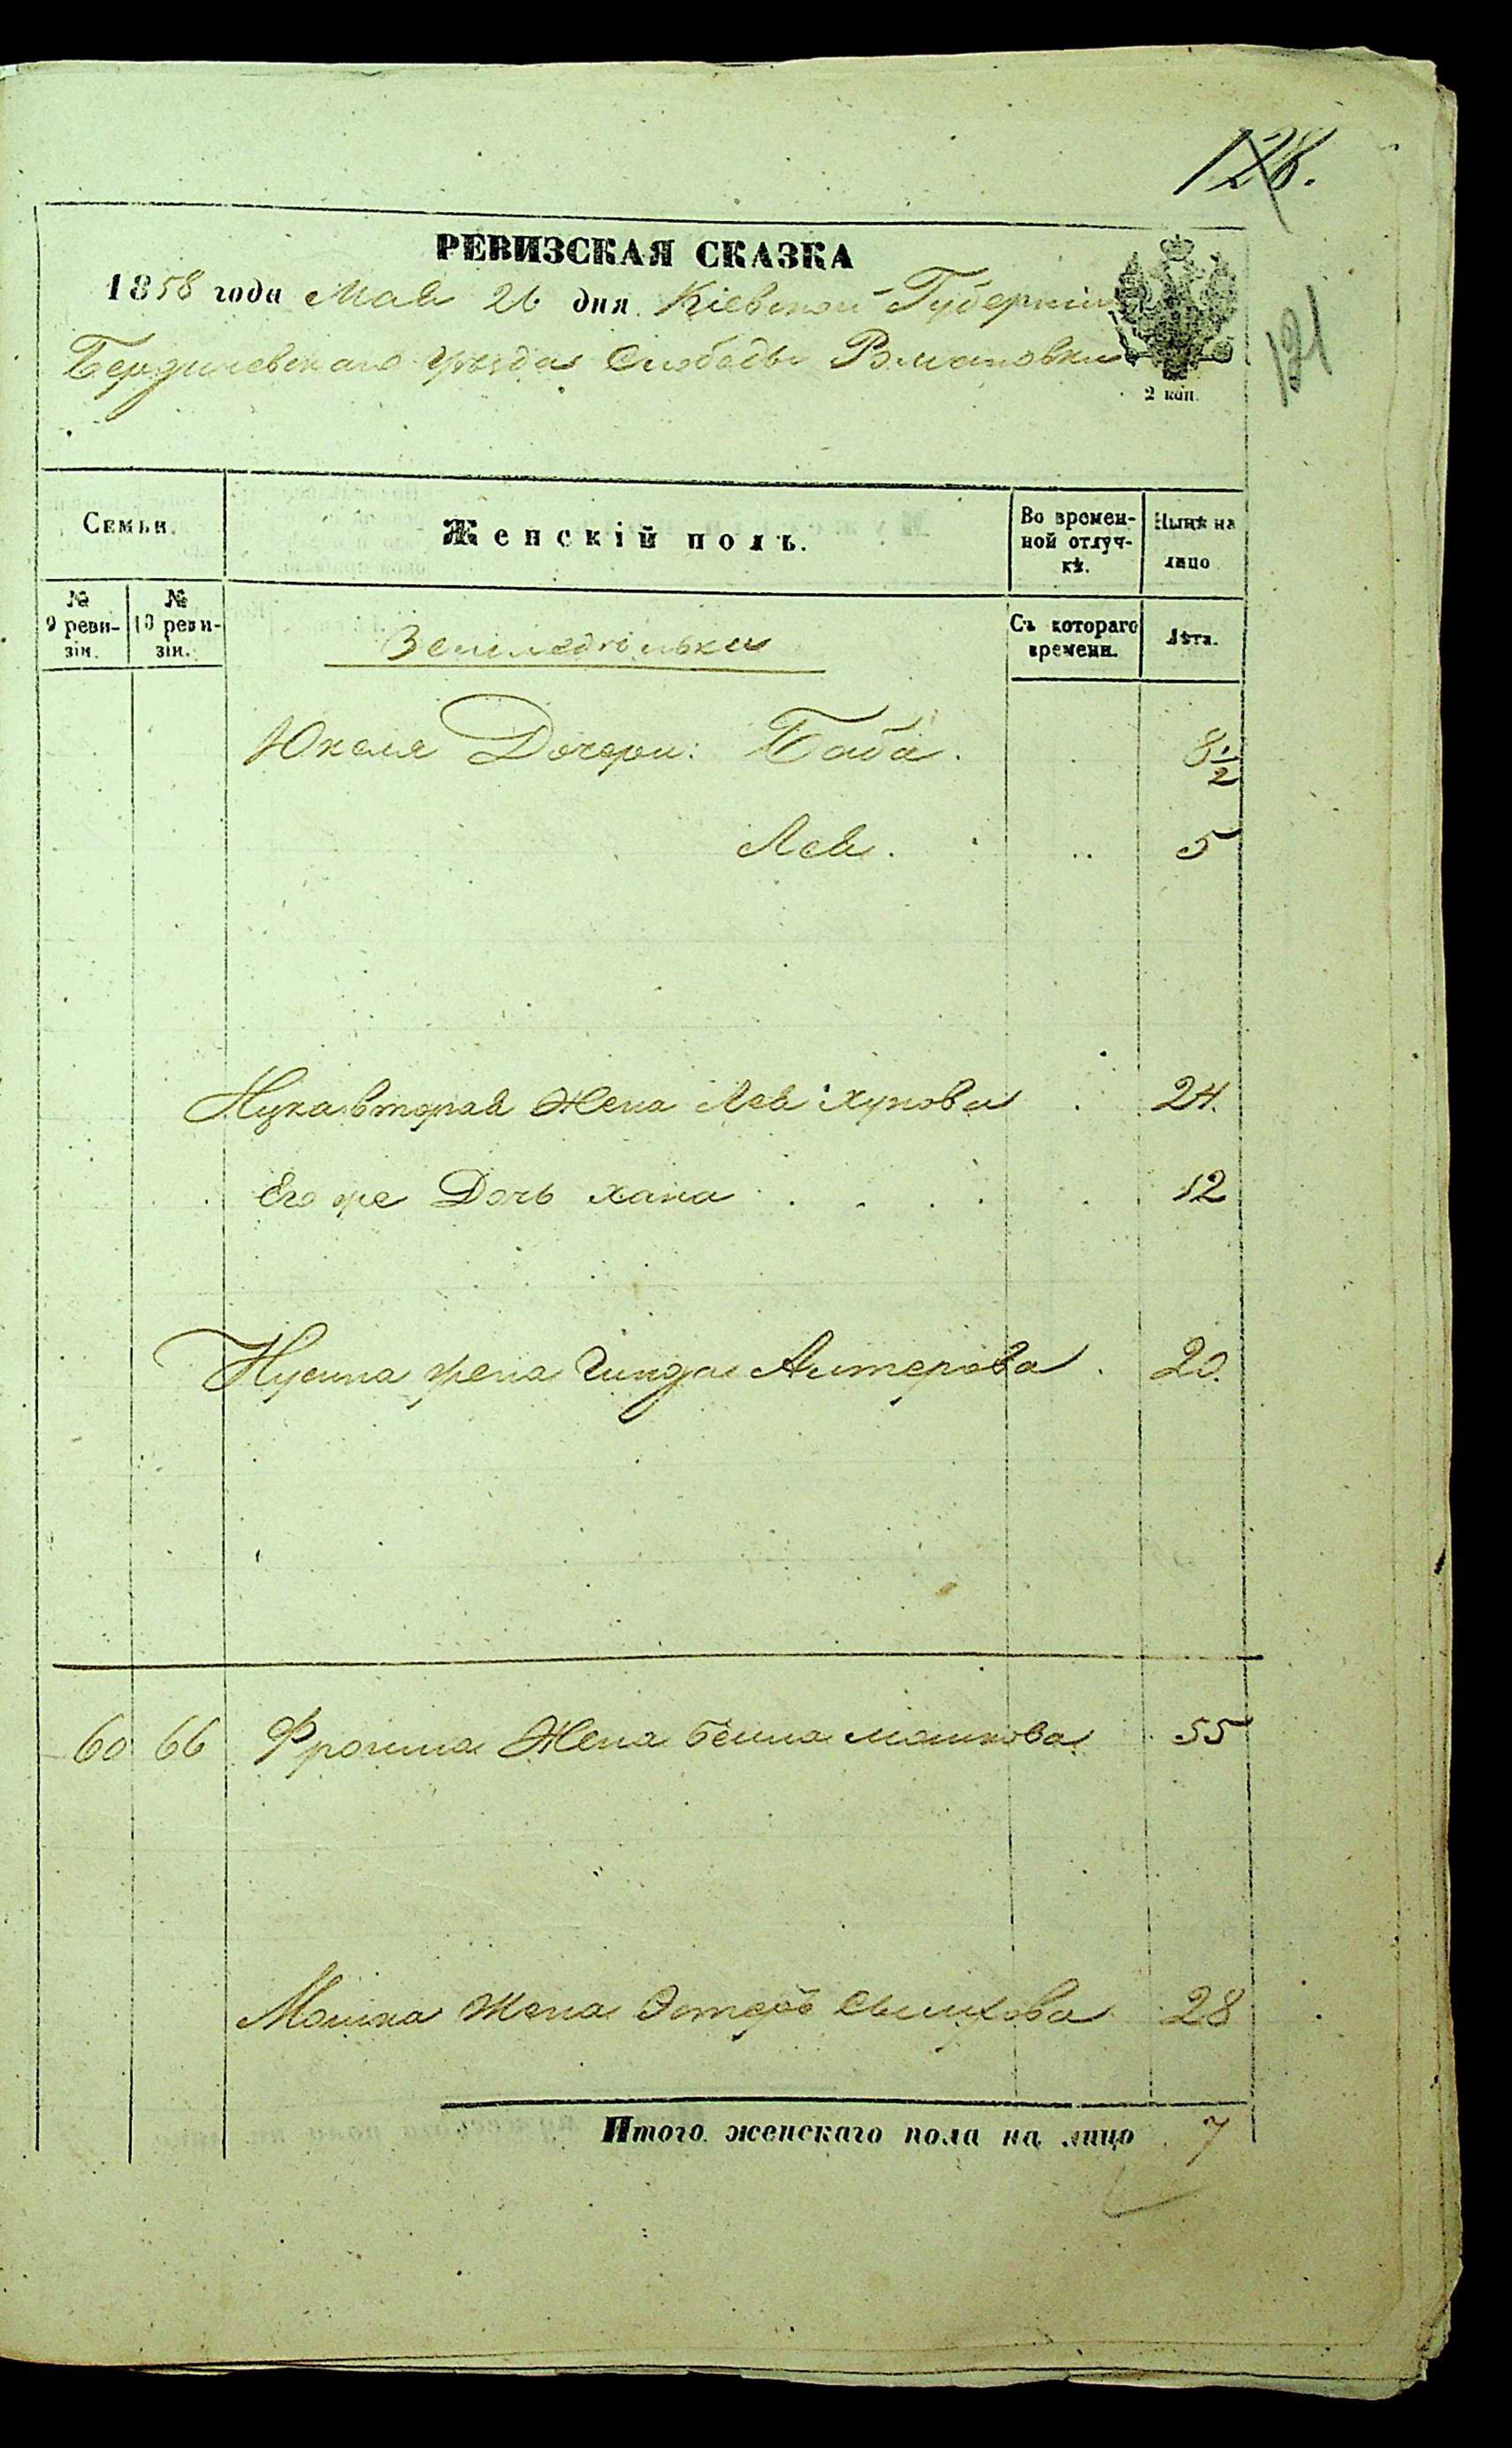 128.
121
РЕВИЗСКАЯ СКАЗКА
1858 года Мая 26 дня Кіевской Губерніи
Бердичевскаго уезда Слободы Романовки
2 коп.
Семьи.
Женскій полъ.
Во времен-
ной отлуч-
кѣ.
Нынѣ на
лицо
№
9 реви-
зіи.
№
10 реви-
зіи.
Земледѣльки
Съ котораго
времени.
Лѣта.
Юкеля Дочери: Баба. 8 1/2
Лея. 5
вторая Жена Лея 24.
Его же Дочь хана 12
Нусина жена Гинда Алтерова 20.
60 66 Фроима Жена Бейла мошкова 55
Мошка Жена Эстеръ 28
Итого женскаго пола на лицо 7